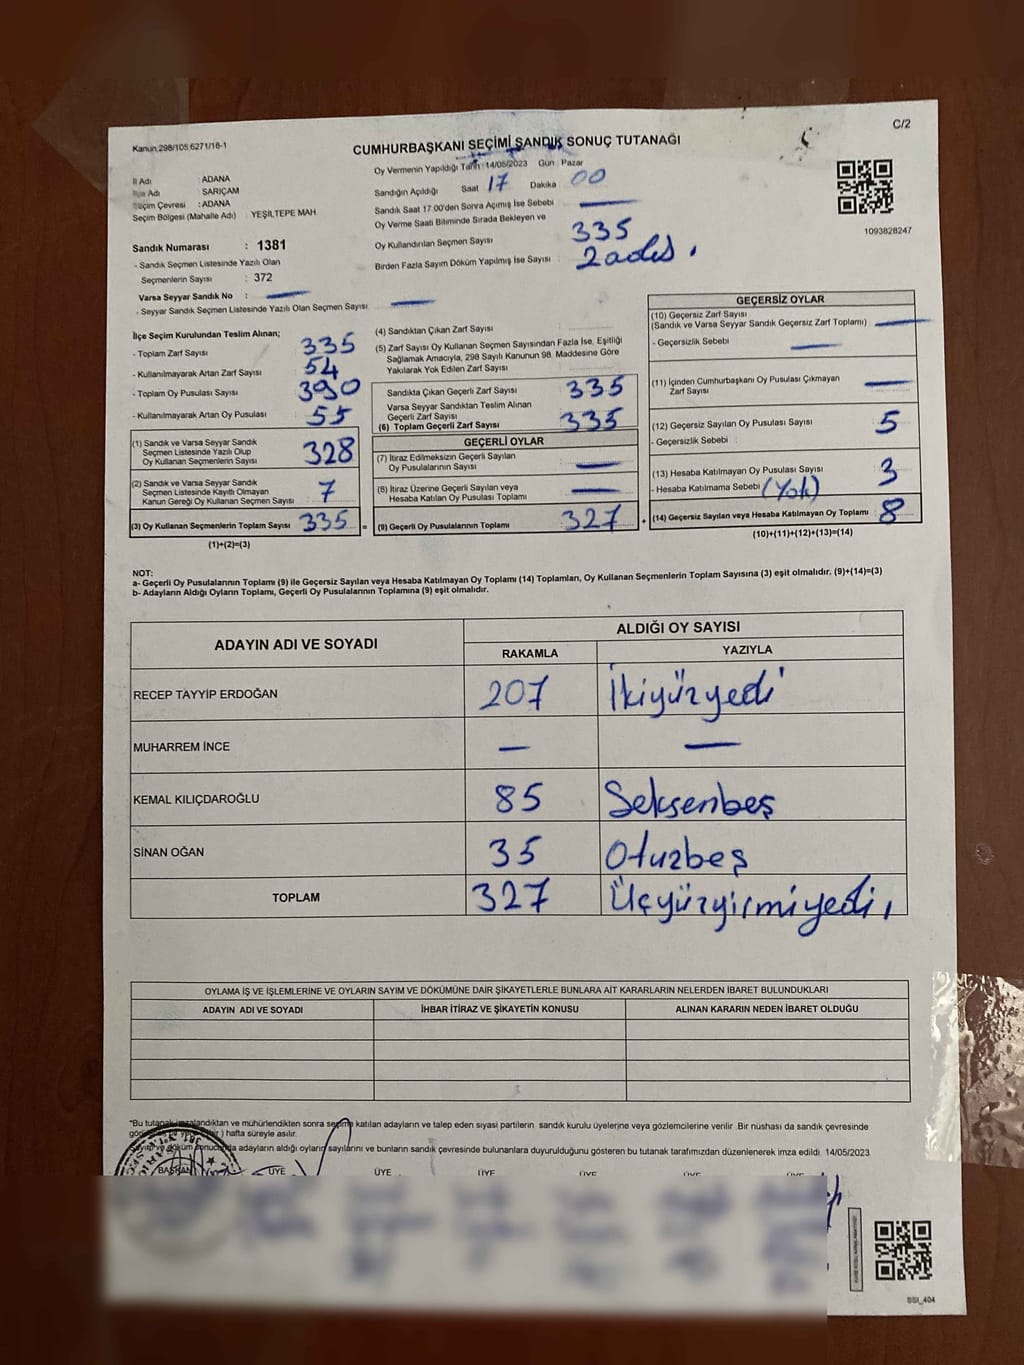 C/2
Kanun:298/105;6271/16-1
CUMHURBAŞKANI SEÇİMİ SANDIK SONUÇ TUTANAĞI
Oy Vermenin Yapıldığı Tarih :14/05/2023 Gün : Pazar
İl Adı : ADANA
İlçe Adı : SARIÇAM
Seçim Çevresi : ADANA
Seçim Bölgesi (Mahalle Adı) : YEŞİLTEPE MAH
Sandığın Açıldığı Saat 17 Dakika 00
Sandık Saat 17.00'den Sonra Açımış İse Sebebi : —
Oy Verme Saati Bitiminde Sırada Bekleyen ve
Oy Kullandırılan Seçmen Sayısı : 335
Birden Fazla Sayım Döküm Yapılmış İse Sayısı : 2 ades.
1093828247
Sandık Numarası : 1381
- Sandık Seçmen Listesinde Yazılı Olan
Seçmenlerin Sayısı : 372
Varsa Seyyar Sandık No : —
- Seyyar Sandık Seçmen Listesinde Yazılı Olan Seçmen Sayısı: —
İlçe Seçim Kurulundan Teslim Alınan;
- Toplam Zarf Sayısı 335
- Kullanılmayarak Artan Zarf Sayısı 54
- Toplam Oy Pusulası Sayısı 390
- Kullanılmayarak Artan Oy Pusulası 55
(1) Sandık ve Varsa Seyyar Sandık
Seçmen Listesinde Yazılı Olup
Oy Kullanan Seçmenlerin Sayısı 328
(2) Sandık ve Varsa Seyyar Sandık
Seçmen Listesinde Kayıtlı Olmayan
Kanun Gereği Oy Kullanan Seçmen Sayısı 7
(3) Oy Kullanan Seçmenlerin Toplam Sayısı 335 =
(1)+(2)=(3)
(4) Sandıktan Çıkan Zarf Sayısı
(5) Zarf Sayısı Oy Kullanan Seçmen Sayısından Fazla İse, Eşitliği
Sağlamak Amacıyla, 298 Sayılı Kanunun 98. Maddesine Göre
Yakılarak Yok Edilen Zarf Sayısı
Sandıkta Çıkan Geçerli Zarf Sayısı 335
Varsa Seyyar Sandıktan Teslim Alınan
Geçerli Zarf Sayısı
(6) Toplam Geçerli Zarf Sayısı 335
GEÇERLİ OYLAR
(7) İtiraz Edilmeksizin Geçerli Sayılan
Oy Pusulalarının Sayısı —
(8) İtiraz Üzerine Geçerli Sayılan veya
Hesaba Katılan Oy Pusulası Toplamı —
(9) Geçerli Oy Pusulalarının Toplamı 327 +
GEÇERSİZ OYLAR
(10) Geçersiz Zarf Sayısı
(Sandık ve Varsa Seyyar Sandık Geçersiz Zarf Toplamı) —
- Geçersizlik Sebebi : —
(11) İçinden Cumhurbaşkanı Oy Pusulası Çıkmayan
Zarf Sayısı —
(12) Geçersiz Sayılan Oy Pusulası Sayısı 5
- Geçersizlik Sebebi :
(13) Hesaba Katılmayan Oy Pusulası Sayısı 3
- Hesaba Katılmama Sebebi (Yok)
(14) Geçersiz Sayılan veya Hesaba Katılmayan Oy Toplamı 8
(10)+(11)+(12)+(13)=(14)
NOT:
a- Geçerli Oy Pusulalarının Toplamı (9) ile Geçersiz Sayılan veya Hesaba Katılmayan Oy Toplamı (14) Toplamları, Oy Kullanan Seçmenlerin Toplam Sayısına (3) eşit olmalıdır. (9)+(14)=(3)
b- Adayların Aldığı Oyların Toplamı, Geçerli Oy Pusulalarının Toplamına (9) eşit olmalıdır.
ADAYIN ADI VE SOYADI ALDIĞI OY SAYISI
RAKAMLA YAZIYLA
RECEP TAYYİP ERDOĞAN 207 İkiyüzyedi
MUHARREM İNCE — —
KEMAL KILIÇDAROĞLU 85 Seksenbeş
SİNAN OĞAN 35 Otuzbeş
TOPLAM 327 Üçyüzyirmiyedi,
OYLAMA İŞ VE İŞLEMLERİNE VE OYLARIN SAYIM VE DÖKÜMÜNE DAİR ŞİKAYETLERLE BUNLARA AİT KARARLARIN NELERDEN İBARET BULUNDUKLARI
ADAYIN ADI VE SOYADI İHBAR İTİRAZ VE ŞİKAYETİN KONUSU ALINAN KARARIN NEDEN İBARET OLDUĞU
*Bu tutanak imzalandıktan ve mühürlendikten sonra seçime katılan adayların ve talep eden siyasi partilerin sandık kurulu üyelerine veya gözlemcilerine verilir. Bir nüshası da sandık çevresinde
) hafta süreyle asılır.
Sayım ve döküm sonucunda adayların aldığı oyların sayılarını ve bunların sandık çevresinde bulunanlara duyurulduğunu gösteren bu tutanak tarafımızdan düzenlenerek imza edildi. 14/05/2023
BAŞKAN ÜYE ÜYE ÜYE ÜYE ÜYE ÜYE
SSI_404